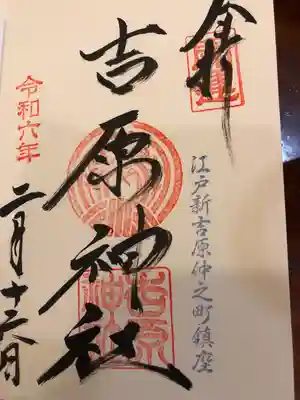 奉拝
江戸新吉原仲之町鎮座
吉原神社
令和六年
二月十六日
吉原
神社